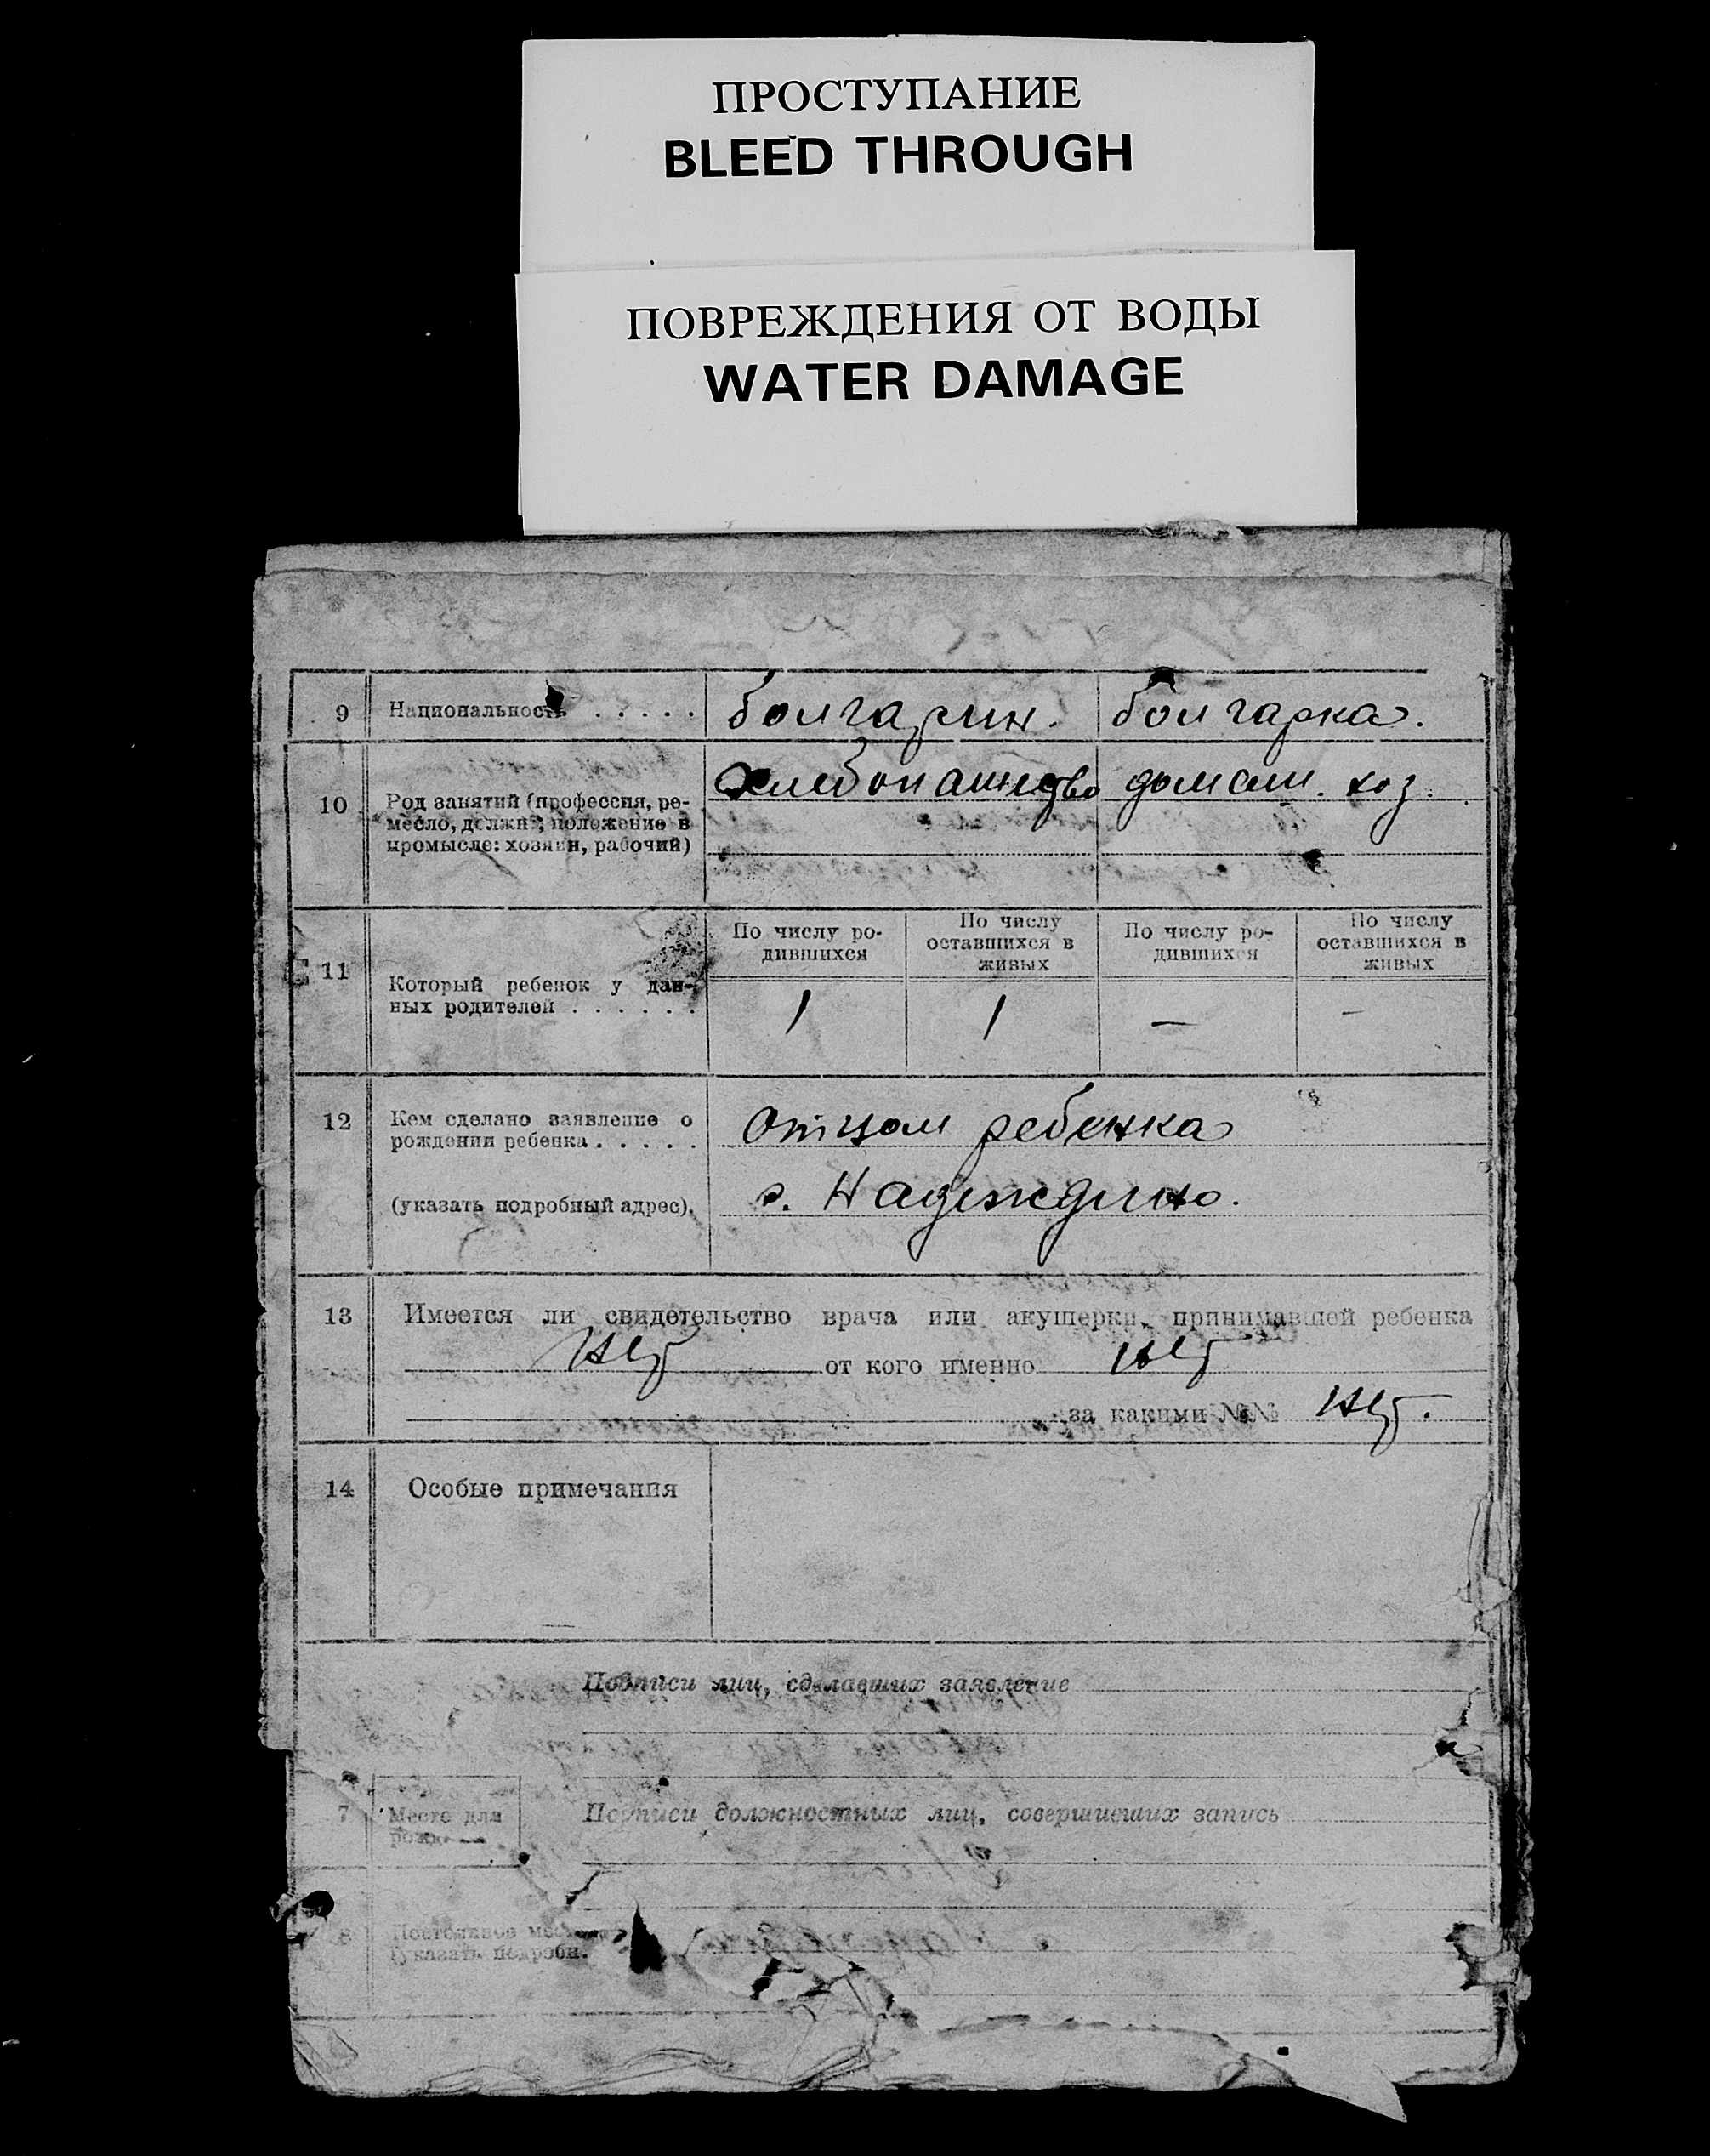 ПРОСТУПАНИЕ
BLEED THROUGH
ПОВРЕЖДЕНИЯ ОТ ВОДЫ
WATER DAMAGE
9 Национальность . . . . . болгарин. болгарка.
хлебопашество домаш. хоз.
10 Род занятий (профессия, ре-
месло, должн., положение в
промысле: хозяин, рабочий)
По числу ро-
дившихся
По числу
оставшихся в
живых
По числу ро-
дившихся
По числу
оставшихся в
живых
11 Который ребенок у дан-
ных родителей . . . . . .
1 1 — —
12 Кем сделано заявление о
рождении ребенка . . . . . Отцом ребенка
(указать подробный адрес). с. Надеждино.
13 Имеется ли свидетельство врача или акушерки, принимавшей ребенка
нет от кого именно нет
за какими №№ нет.
14 Особые примечания
Подписи лиц, сделавших заявление
7 Место для
Подписи должностных лиц, совершивших запись
8 Постоянное
(указать подробн.